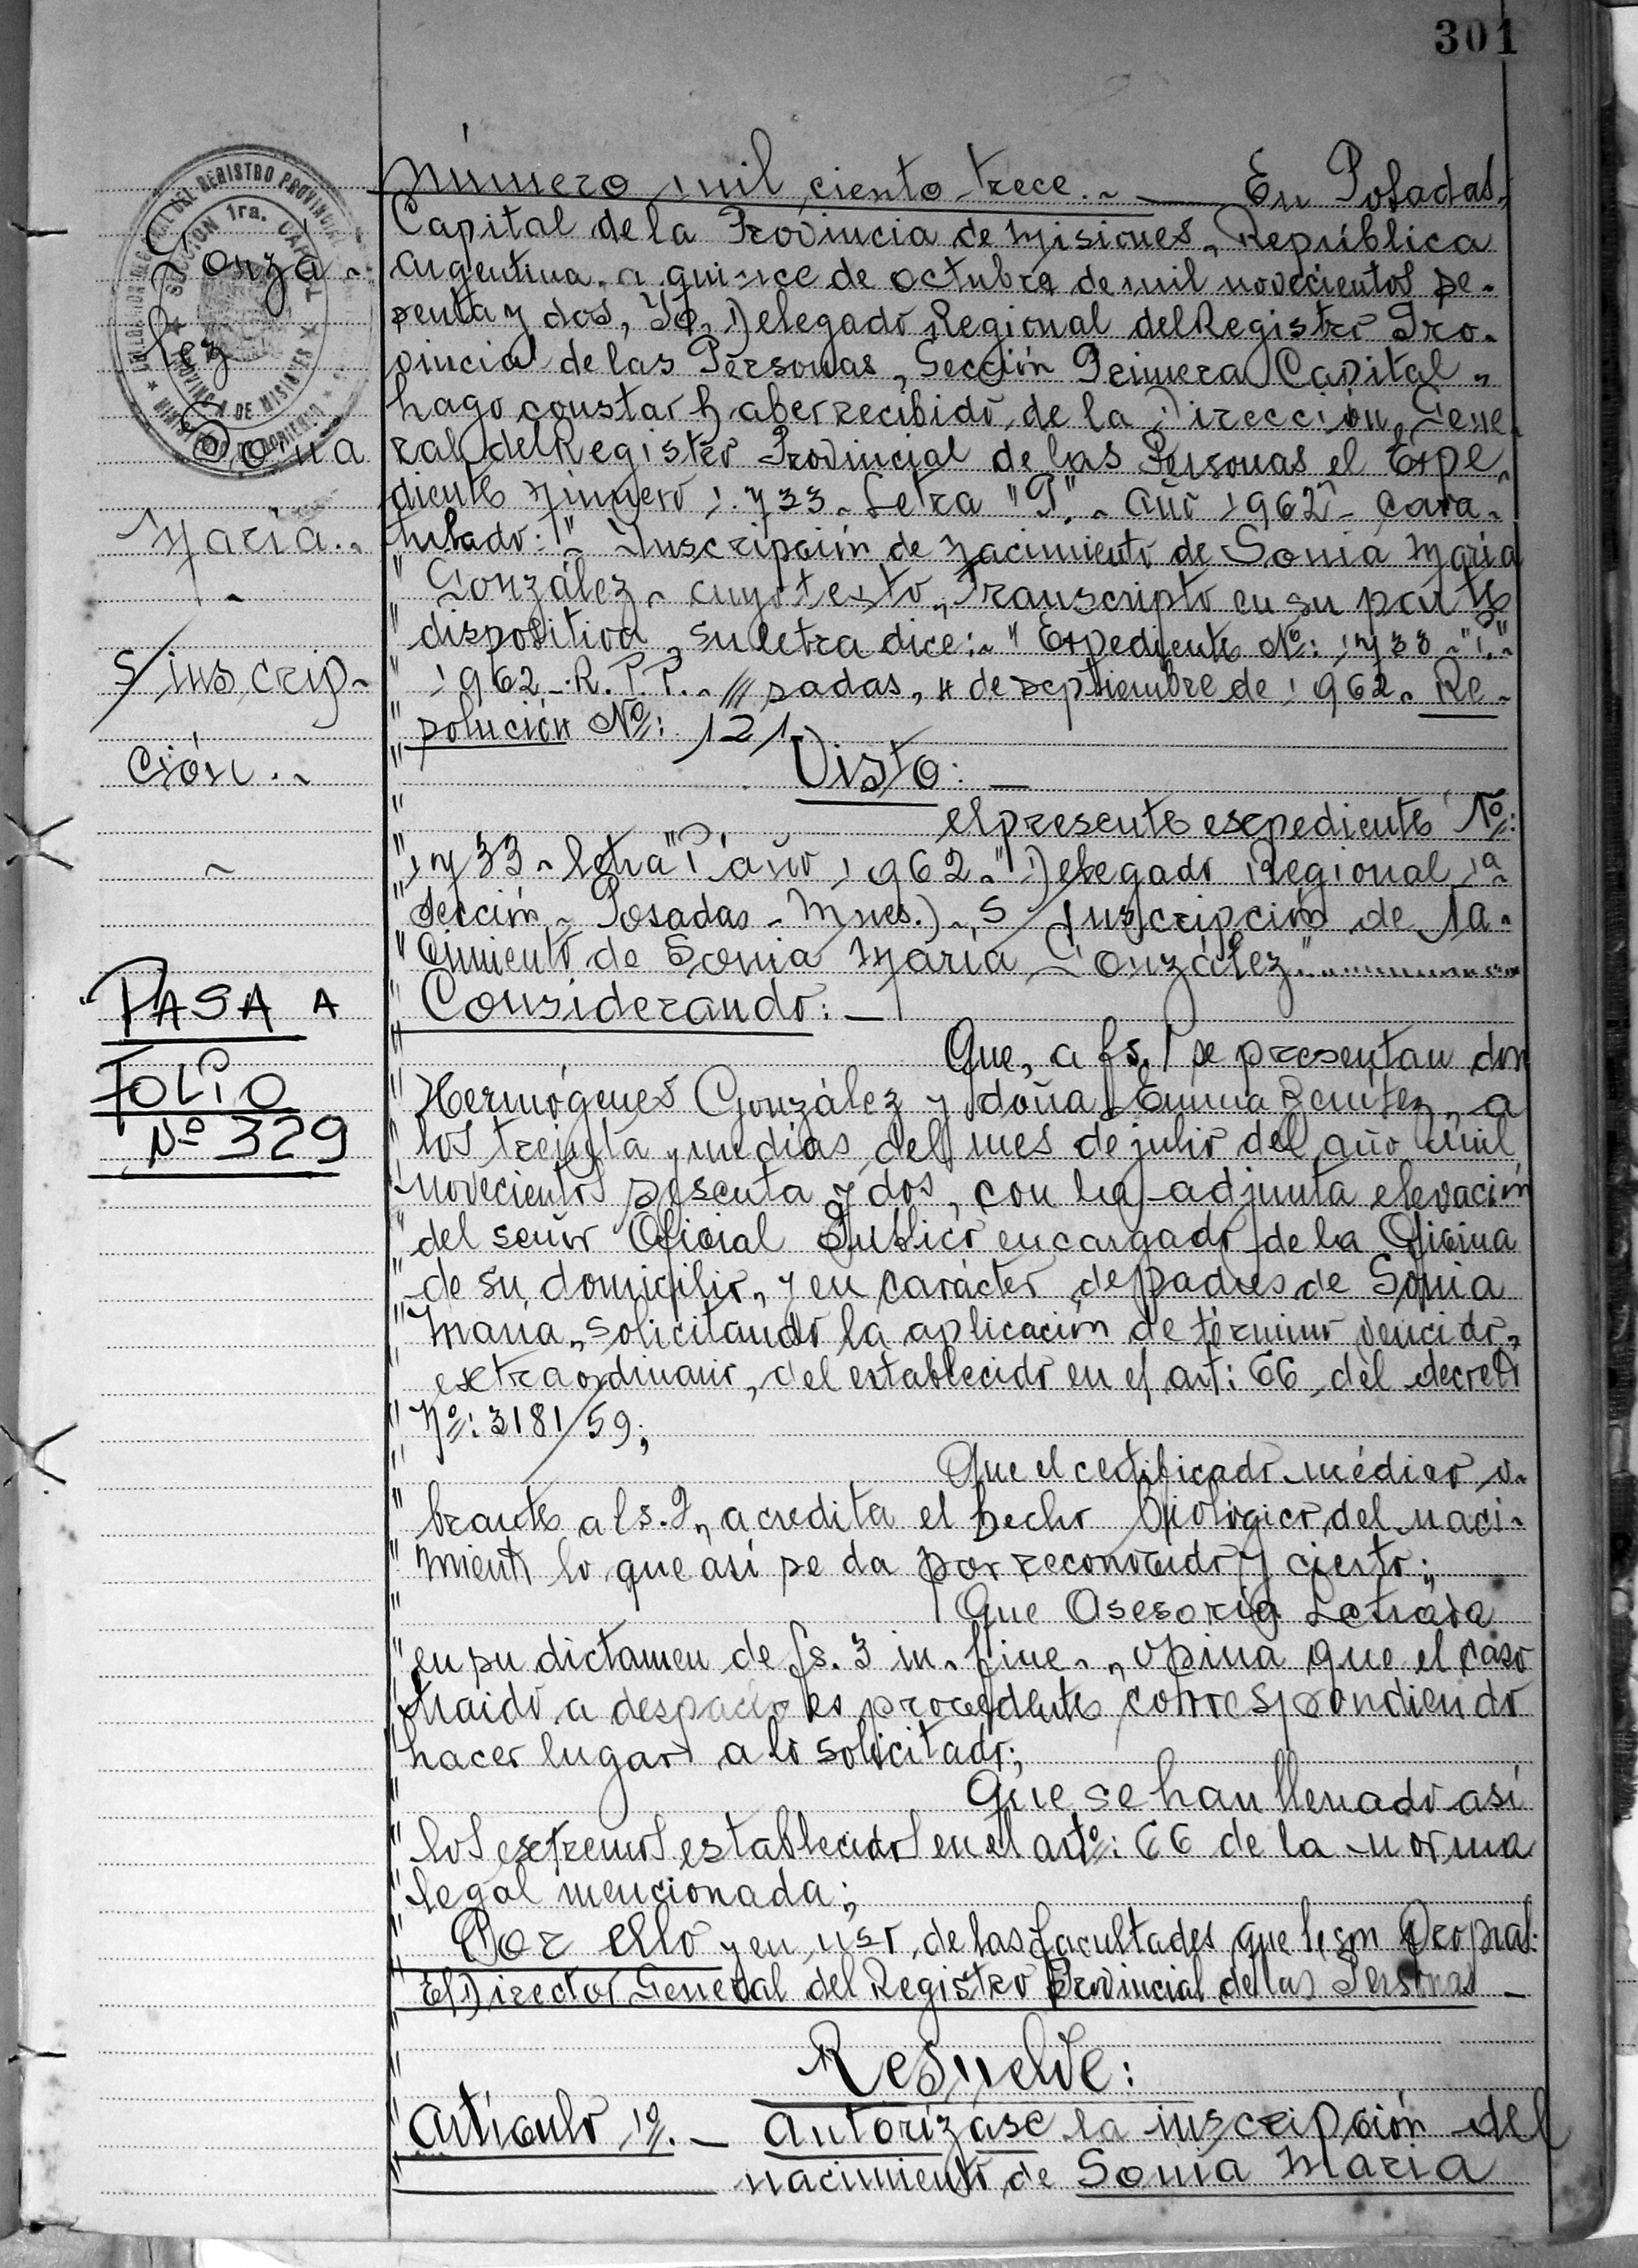 301
Número mil ciento trece.~ — En Posadas,
Capital de la Provincia de Misiones, República
Argentina, a quince de octubre de mil novecientos se-
senta y dos, Yo, Delegado Regional del Registro Pro-
vincial de las Personas, Sección Primera Capital,
hago constar haber recibido de la Dirección Gene-
ral del Registro Provincial de las Personas el Expe-
diente Número 1.733 - Letra "P".~ Año 1962 - cara-
tulado: "~ Inscripción de Nacimiento de Sonia María
" González ~ cuyo texto, transcripto en su parte
" dispositiva, su letra dice:~ " Expediente Nº: 1733 ~ "P."~
" 1962 -. R. P. P. ~ /// sadas, 4 de septiembre de 1962. Re-
" solución Nº: 121
Visto: —
" el presente expediente Nº:
" 1733 ~ letra "P" año 1962 ~ " Delegado Regional 1ª
" Sección ~ Posadas - Mnes.) ~ S/Inscripción de Na-
" cimiento de Sonia María González"
" Considerando: —
" Que, a fs. 1 se presentan don
" Hermógenes González y doña Emma Benítez, a
" los treinta y un días del mes de julio del año mil
" novecientos sesenta y dos, con la adjunta elevación
" del señor Oficial Público encargado de la Oficina
" de su domicilio, y en carácter de padres de Sonia
" María, solicitando la aplicación de término vencido,
" extraordinario, del establecido en el art: 66 del decreto
" Nº: 3181/59;
" Que el certificado médico o-
" brante a fs. 2, acredita el hecho biológico del naci-
" miento lo que así se da por reconocido y cierto;
" Que Asesoría Letrada
" en su dictamen de fs. 3 in-fine-, opina que el caso
" traido a despacho es procedente correspondiendo
" hacer lugar a lo solicitado;
" Que se han llenado así
" los extremos establecidos en el artº: 66 de la norma
" legal mencionada;
" Por ello y en uso de las facultades que le son propias:
" El Director General del Registro Provincial de las Personas —
" Resuelve:
" Artículo 1º. — Autorízase la inscripción del
" nacimiento de Sonia María
Gonzá-
lez
Sonia
María.~
~
S/inscrip-
ción.~
~
PASA A
FOLIO
Nº 329
DEL REGISTRO PROVINCIAL
SECCION 1ra. CAPITAL
PROVINCIA DE MISIONES
MINISTERIO DE GOBIERNO